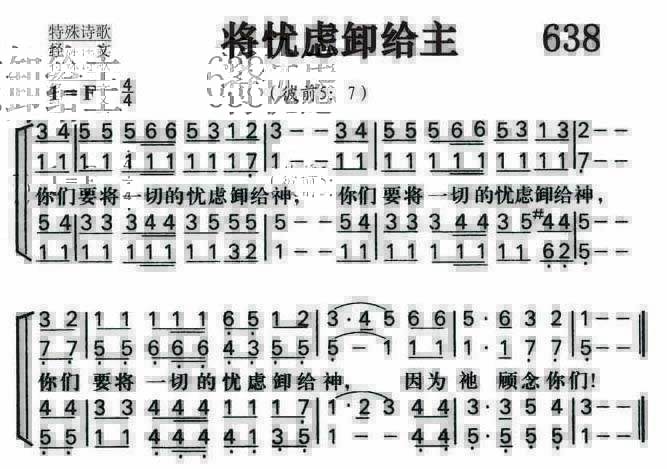 特殊诗歌
将忧虑卸给主 638
经 文
1=F 4/4
(彼前5: 7)
3 4 | 5 5 5 6 6 5 3 1 2 | 3 - - 3 4 | 5 5 5 6 6 5 3 1 3 | 2 - -
1 1 | 1 1 1 1 1 1 1 1 7 | 1 - - 1 1 | 1 1 1 1 1 1 1 1 1 | 7 - -
你们要将一切的忧虑卸给神, 你们要将一切的忧虑卸给神,
5 4 | 3 3 3 4 4 3 5 5 5 | 5 - - 5 4 | 3 3 3 4 4 3 5 #4 4 | 5 - -
1 1 | 1 1 1 1 1 1 1 3 2 | 1 - - 1 1 | 1 1 1 1 1 1 1 6 2 | 5 - -
3 2 | 1 1 1 1 1 6 5 1 2 | 3 · 4 5 6 6 | 5 · 6 3 2 | 1 - - ||
7 7 | 5 5 6 6 6 4 3 5 5 | 5 - 1 1 1 | 1 · 1 7 7 | 5 - -
你们 要将 一切的忧虑卸给神, 因为 祂 顾念你们!
4 4 | 3 3 4 4 4 1 1 1 7 | 1 · 2 3 4 4 | 3 · 3 5 4 | 3 - -
5 5 | 1 1 4 4 4 4 1 3 5 | 1 - - 4 4 | 5 · 5 5 5 | 1 - - ||